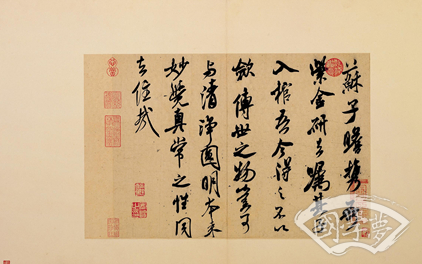 蘇子瞻携吾
紫金研去嘱其子
入棺吾今得之不以
斂傳世之物豈可
与清淨圓明本来
妙覺真常之性同
去住哉
國學夢